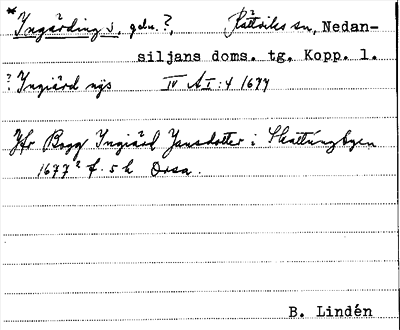 *Ingärding s, gdn.?, Rättviks sn, Nedan-
siljans doms. tg. Kopp. l.
? Ingiärd nÿs IV AI:4 1677
Jfr Bogg Ingiärd Jansdotter i Skattungbyen
1677 f. 5 k Orsa.
B. Lindén